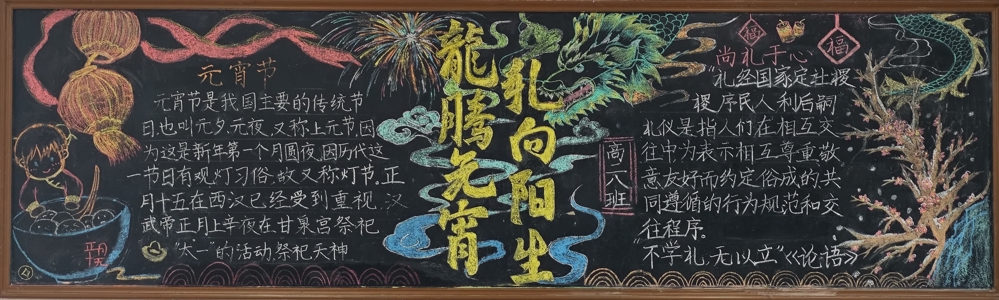 元宵节
元宵节是我国主要的传统节
日,也叫元夕、元夜,又称上元节,因
为这是新年第一个月圆夜,因历代这
一节日有观灯习俗,故又称灯节。正
月十五在西汉已经受到重视,汉
武帝正月上辛夜在甘泉宫祭祀
“太一”的活动,祭祀天神
龍腾元宵
礼向阳生
高一八班
福
福
尚礼于心
“礼,经国家,定社稷
稷,序民人,利后嗣
礼仪是指人们在相互交
往中为表示相互尊重敬
意友好而约定俗成的,共
同遵循的行为规范和交
往程序。
不学礼,无以立”《论语》